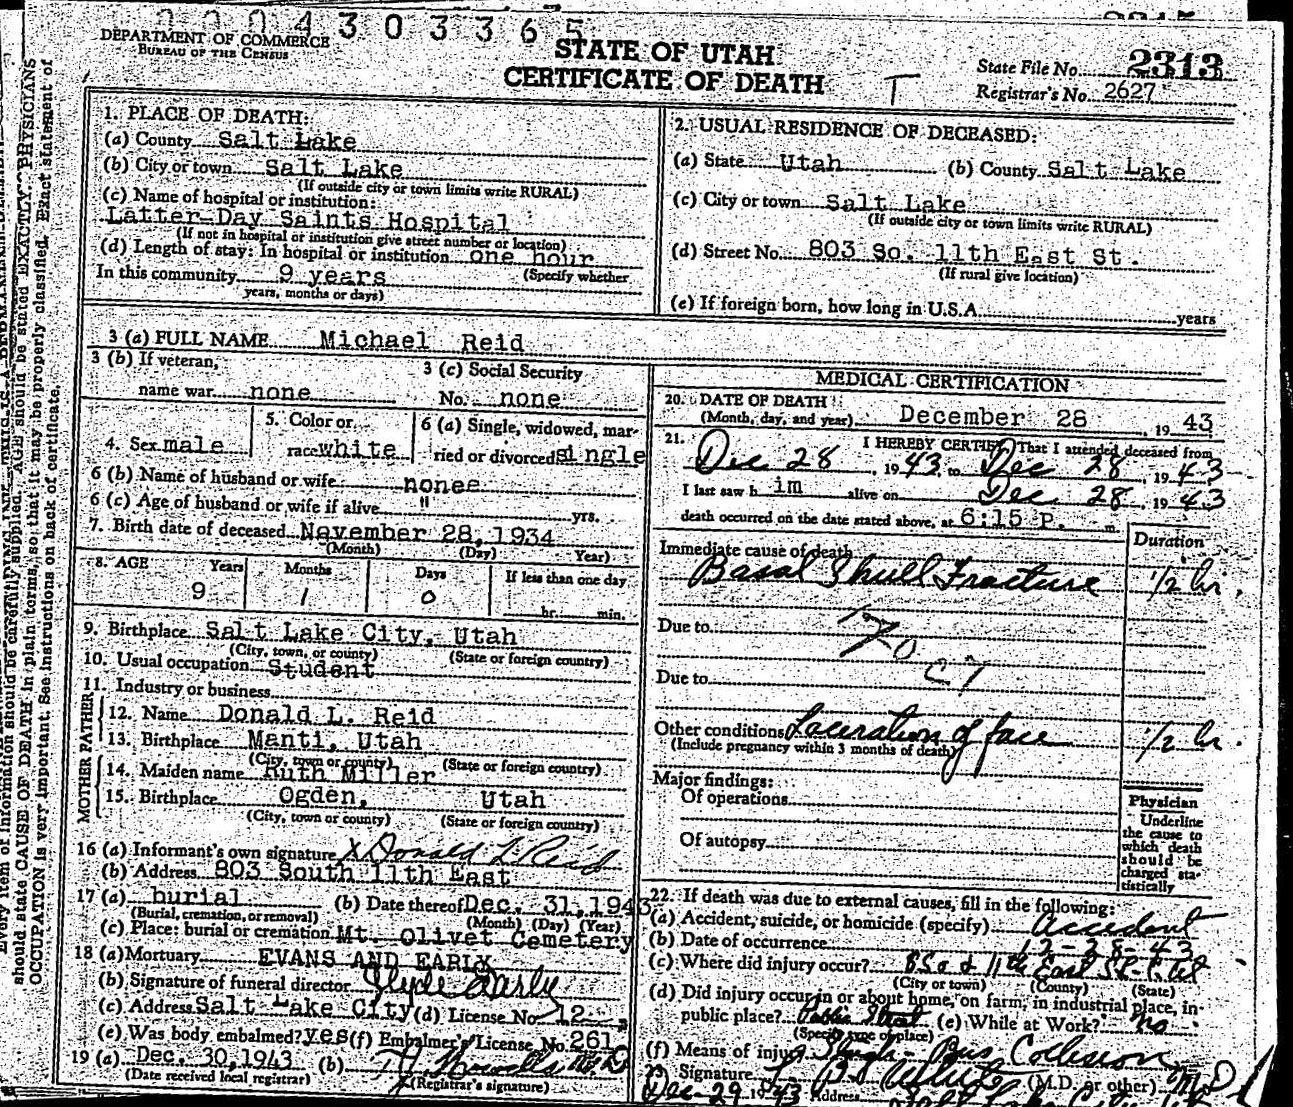 2004303365
DEPARTMENT OF COMMERCE
BUREAU OF THE CENSUS
STATE OF UTAH
CERTIFICATE OF DEATH
T
State File No. 2313
Registrar's No. 2627
1. PLACE OF DEATH:
(a) County Salt Lake
(b) City or town Salt Lake
(If outside city or town limits write RURAL)
(c) Name of hospital or institution:
Latter-Day Saints Hospital
(If not in hospital or institution give street number or location)
(d) Length of stay: In hospital or institution one hour
(Specify whether
In this community 9 years
years, months or days)
2. USUAL RESIDENCE OF DECEASED:
(a) State Utah (b) County Salt Lake
(c) City or town Salt Lake
(If outside city or town limits write RURAL)
(d) Street No. 803 So. 11th East St.
(If rural give location)
(e) If foreign born, how long in U.S.A. years
3 (a) FULL NAME Michael Reid
3 (b) If veteran,
name war none
3 (c) Social Security
No. none
4. Sex male
5. Color or
race white
6 (a) Single, widowed, mar-
ried or divorced single
6 (b) Name of husband or wife nonee
6 (c) Age of husband or wife if alive " yrs.
7. Birth date of deceased November 28, 1934
(Month) (Day) Year)
8. AGE Years Months Days If less than one day
9 1 0 hr. min.
9. Birthplace Salt Lake City, Utah
(City, town, or county) (State or foreign country)
10. Usual occupation Student
11. Industry or business
FATHER
12. Name Donald L. Reid
13. Birthplace Manti, Utah
(City, town or county) (State or foreign country)
MOTHER
14. Maiden name Ruth Miller
15. Birthplace Ogden, Utah
(City, town or county) (State or foreign country)
16 (a) Informant's own signature X Donald L Reid
(b) Address 803 South 11th East
17 (a) burial (b) Date thereof Dec. 31, 1943
(Burial, cremation, or removal) (Month) (Day) (Year)
(c) Place: burial or cremation Mt. Olivet Cemetery
18 (a) Mortuary EVANS AND EARLY
(b) Signature of funeral director Clyde Early
(c) Address Salt Lake City (d) License No. 12
(e) Was body embalmed? yes (f) Embalmer's License No. 261
19 (a) Dec. 30, 1943 (b)
(Date received local registrar) (Registrar's signature)
MEDICAL CERTIFICATION
20. DATE OF DEATH:
(Month, day, and year) December 28, 1943
21. I HEREBY CERTIFY That I attended deceased from
Dec 28, 1943 to Dec 28, 1943
I last saw h im alive on Dec 28, 1943
death occurred on the date stated above, at 6:15 P. m.
Duration
Immediate cause of death
Basal Skull Fracture 1/2 hr.
Due to
Due to
Other conditions Laceration of face 1/2 hr.
(Include pregnancy within 3 months of death)
Major findings:
Of operations
Of autopsy
Physician
Underline
the cause to
which death
should be
charged sta-
tistically
22. If death was due to external causes, fill in the following:
(a) Accident, suicide, or homicide (specify) Accident
(b) Date of occurrence 12-28-43
(c) Where did injury occur? 11th East
(City or town) (County) (State)
(d) Did injury occur in or about home, on farm, in industrial place, in
public place? Public Street (e) While at Work? no
(Specify type of place)
(f) Means of injury Sleigh - Bus Collision
23. Signature (M.D. or other) M.D.
Dec-29 1943 Address Salt Lake City
should state CAUSE OF DEATH in plain terms, so that it may be properly classified. Exact statement of
OCCUPATION is very important. See instructions on back of certificate.